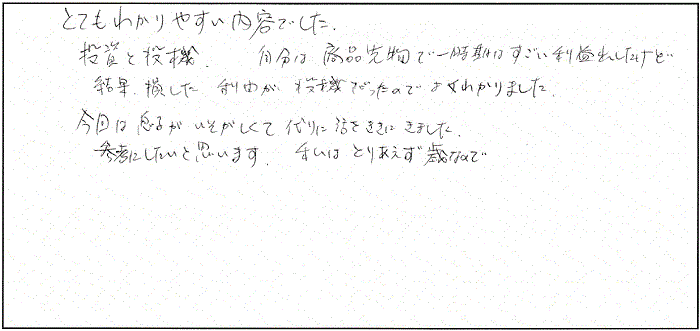 とてもわかりやすい内容でした.
投資と投機. 自分は商品先物で一時期はすごい利益出したけど
結果、損した 利由が 投機だったのでよくわかりました.
今回は息子がいそがしくて代りに話をききにきました.
参考にしたいと思います. 私は とりあえず 歳なので